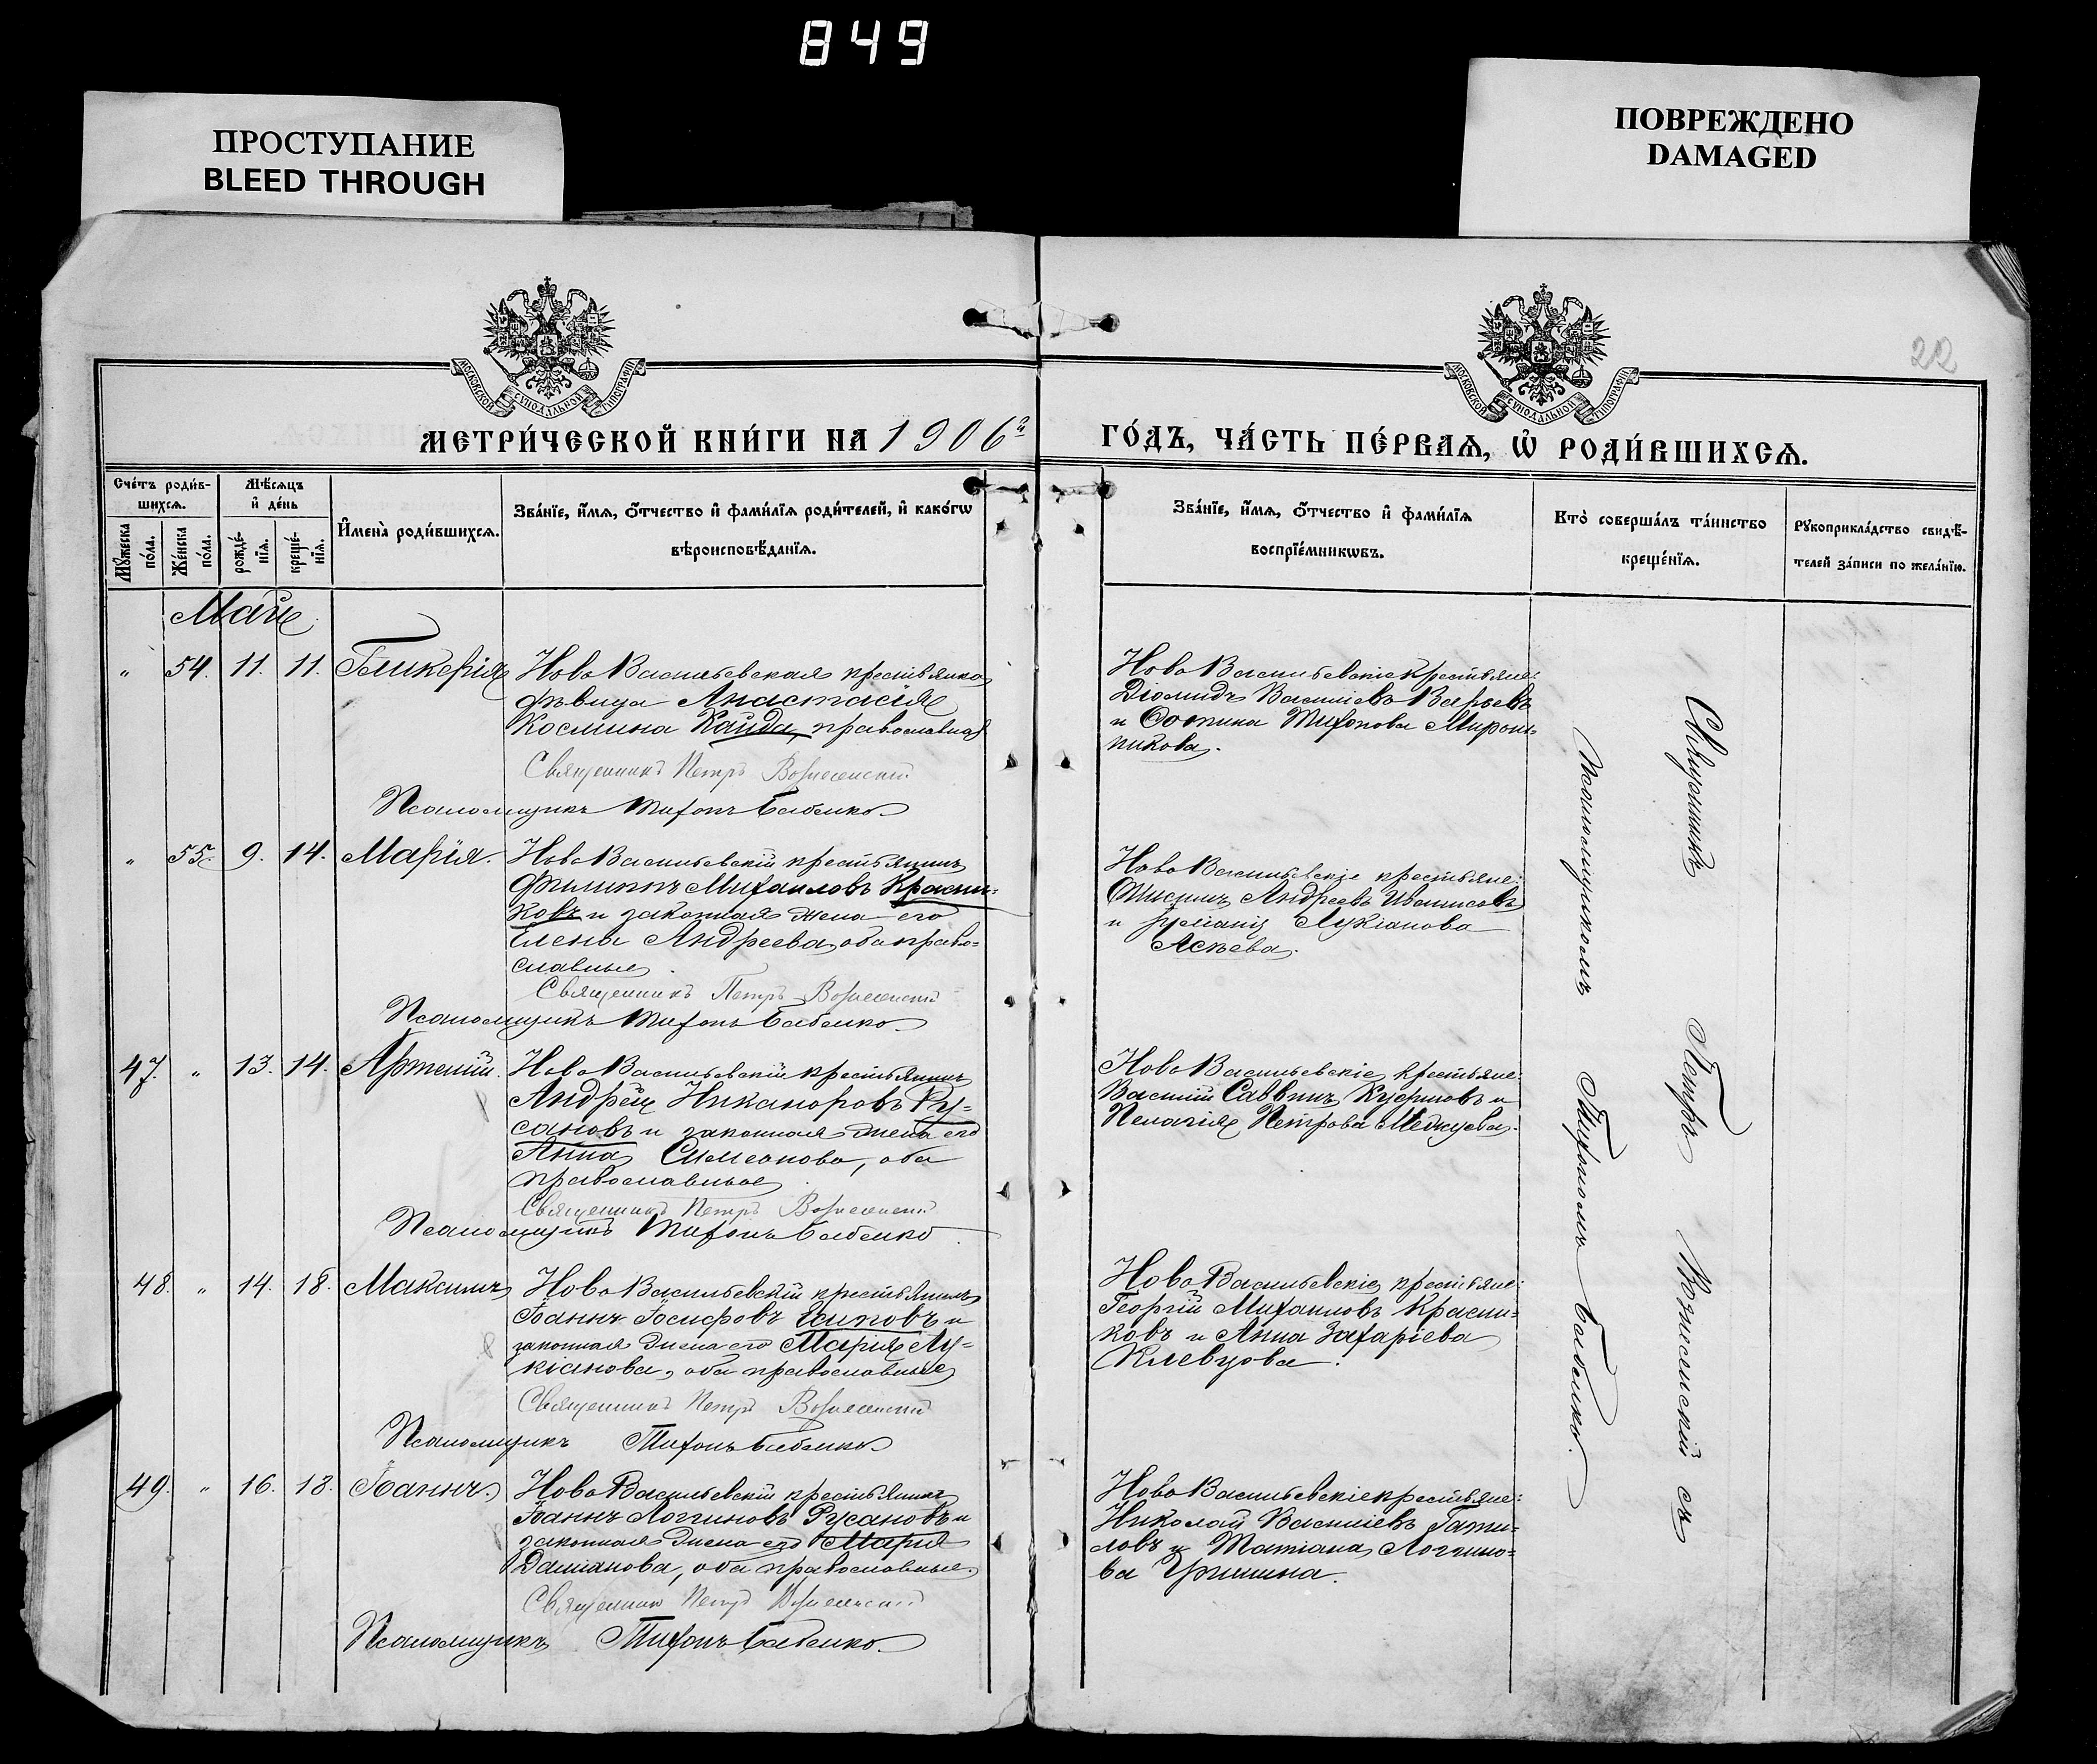 849
ПРОСТУПАНИЕ
BLEED THROUGH
ПОВРЕЖДЕНО
DAMAGED
22
МОСКОВСКОЙ СУНОДАЛЬНОЙ ТИПОГРАФІИ
МОСКОВСКОЙ СУНОДАЛЬНОЙ ТИПОГРАФІИ
МЕТРИ́ЧЕСКОЙ КНИ́ГИ НА 1906 г
ГО́ДЪ, ЧА́СТЬ ПЕ́РВАѦ, Ѡ҆ РОДИ́ВШИХСѦ.
Сче́тъ роди́в-
шихсѧ.
Мѣ́сѧцъ
и҆ де́нь
Мꙋ́жеска
по́ла.
Же́нска
по́ла.
рожде́-
нїѧ.
креще́-
нїѧ.
И҆мена̀ роди́вшихсѧ.
Зва́нїе, и҆́мѧ, ѻ҆́тчество и҆ фами́лїѧ роди́телей, и҆ како́гѡ
вѣроисповѣ́данїѧ.
Зва́нїе, и҆́мѧ, ѻ҆́тчество и҆ фами́лїѧ
воспрїе́мникѡвъ.
Кто̀ соверша́лъ та́инство
креще́нїѧ.
Рꙋкоприкла́дство свидѣ́-
телей за́писи по жела́нїю.
Май
" 54. 11. 11. Гликерія
Ново Васильевская крестьянка
дѣвица Анастасія
Космина Кайда, православная
Священникъ Петръ Вознесенскій
Псаломщикъ Тихонъ Бабенко
Ново Васильевскіе крестьяне:
Діомидъ Василіевъ
и Тихонова Мирош-
никова.
" 55. 9. 14. Марія.
Ново Васильевскій крестьянинъ
Филиппъ Михаиловъ Красни-
ковъ и законная жена его
Елена Андреева, оба право-
славные
Священникъ Петръ Вознесенскій
Псаломщикъ Тихонъ Бабенко
Ново Васильевскіе крестьяне:
Андреевъ
и Лукіанова
47. " 13. 14. Артемій.
Ново Васильевскій крестьянинъ
Андрей Никаноровъ Ру-
сановъ и законная жена его
Анна Симеонова, оба
православные
Священникъ Петръ Вознесенскій
Псаломщикъ Тихонъ Бабенко
Ново Васильевскіе крестьяне:
Василій Саввинъ и
Пелагія Петрова
48. " 14. 18. Максимъ
Ново Васильевскій крестьянинъ
Іоаннъ Іосифовъ Есиповъ и
законная жена его Марія Лу-
кіанова, оба православные
Священникъ Петръ Вознесенскій
Псаломщикъ Тихонъ Бабенко
Ново Васильевскіе крестьяне:
Георгій Михаиловъ Красни-
ковъ и Анна Захаріева
Клевцова.
49. " 16. 18. Іоаннъ.
Ново Васильевскій крестьянинъ
Іоаннъ Логгиновъ Русановъ и
законная жена его Марія
Даміанова, оба православные.
Священникъ Петръ Вознесенскій
Псаломщикъ Тихонъ Бабенко
Ново Васильевскіе крестьяне:
Николай Василіевъ Гати-
ловъ и Татіана Логгино-
ва
Священникъ Петръ Вознесенскій съ
псаломщикомъ Тихономъ Бабенко.